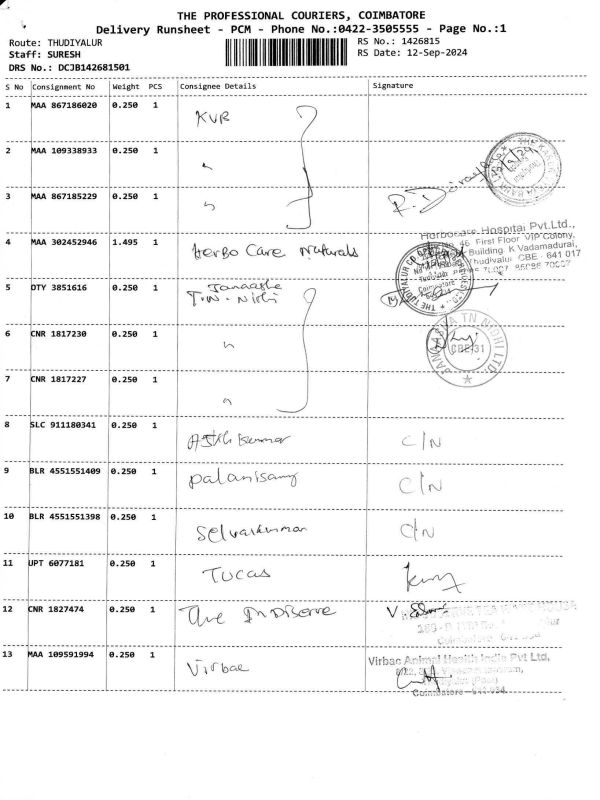 THE PROFESSIONAL COURIERS, COIMBATORE
Delivery Runsheet - PCM - Phone No.:0422-3505555 - Page No.:1
Route: THUDIYALUR
Staff: SURESH
DRS No.: DCJB142681501
RS No.: 1426815
RS Date: 12-Sep-2024
S No Consignment No Weight PCS Consignee Details Signature
1 MAA 867186020 0.250 1 KVB
2 MAA 109338933 0.250 1 "
3 MAA 867185229 0.250 1 "
4 MAA 302452946 1.495 1 Herbo Care Naturals
Herbocare Hospital Pvt.Ltd.,
46, First Floor VIP Colony,
Building, K Vadamadurai,
Thudiyalur CBE - 641 017
5 DTY 3851616 0.250 1 Janaasha
T.N. Nidhi
6 CNR 1817230 0.250 1 "
JANAASHA TN NIDHI LTD.
CBE-31
7 CNR 1817227 0.250 1 "
8 SLC 911180341 0.250 1 C/N
9 BLR 4551551409 0.250 1 Palanisamy C/N
10 BLR 4551551398 0.250 1 Selvakumar C/N
11 UPT 6077181 0.250 1 TUCAS
12 CNR 1827474 0.250 1 The
Coimbatore
13 MAA 109591994 0.250 1 Virbac
Virbac Animal Health India Pvt Ltd,
Coimbatore